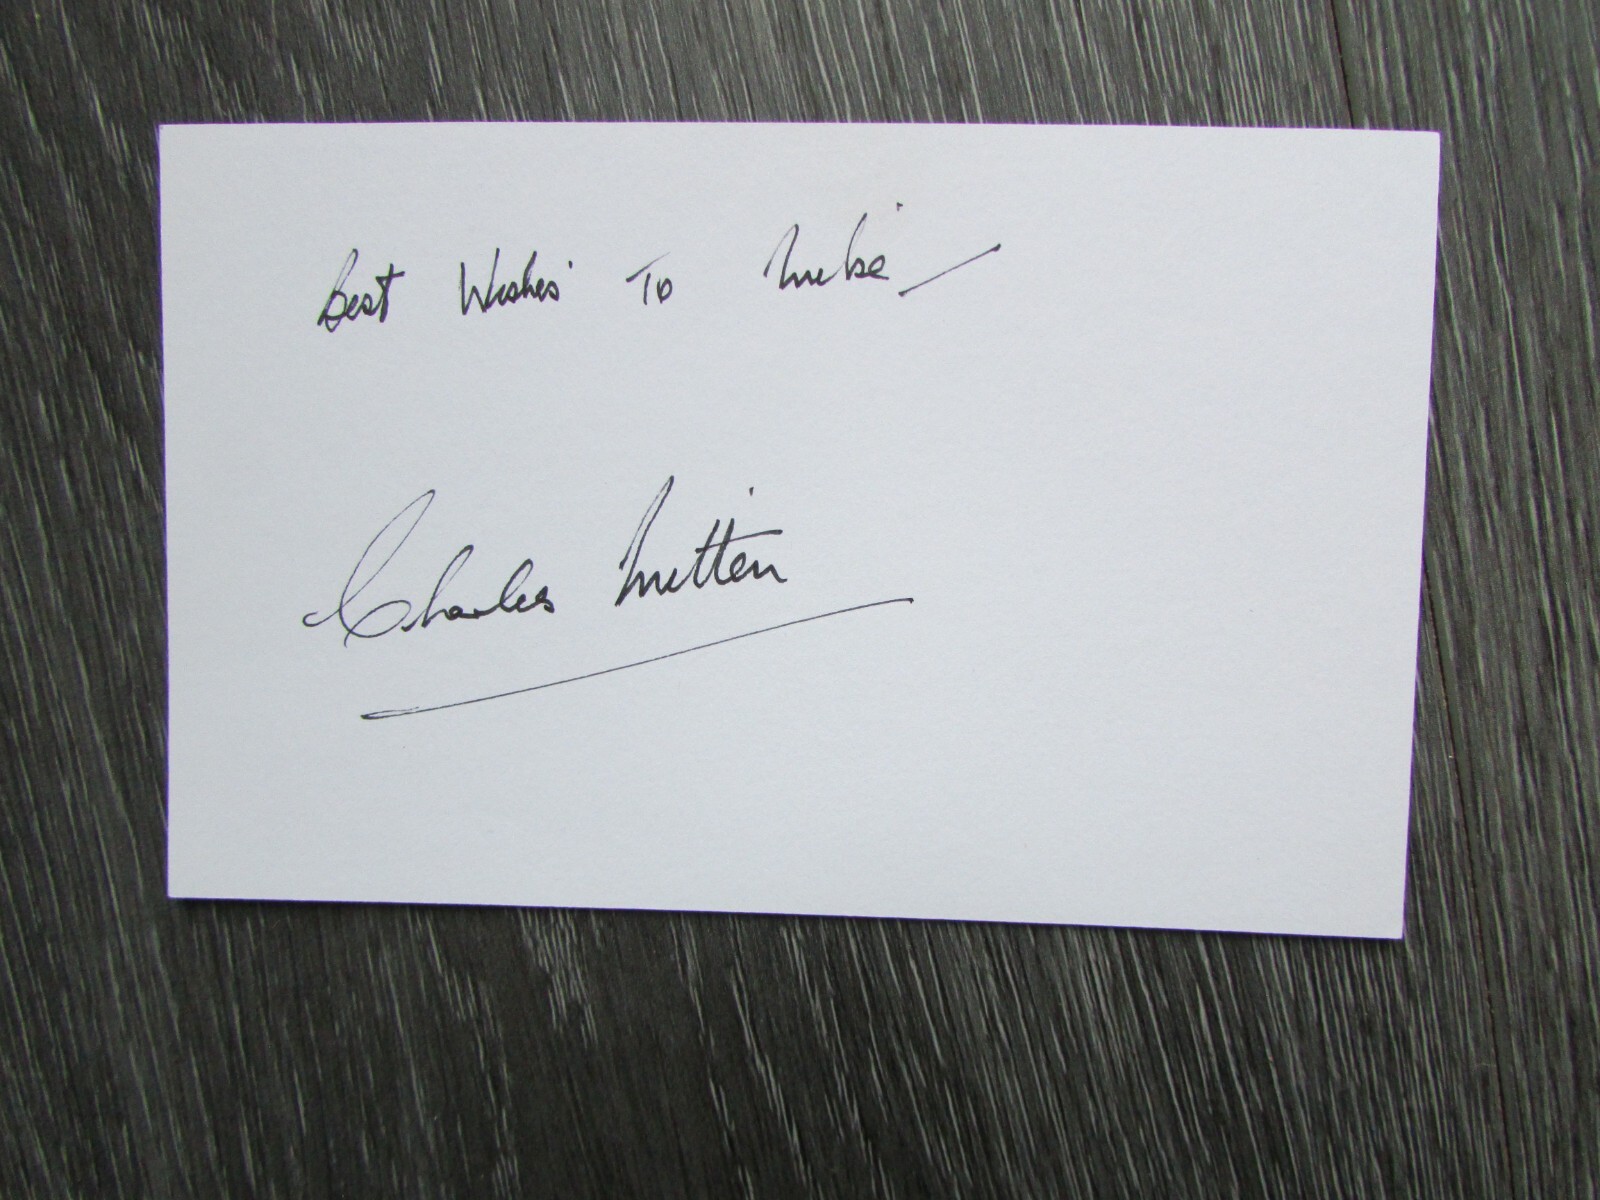 Best Wishes To Mike
Charles Mitten